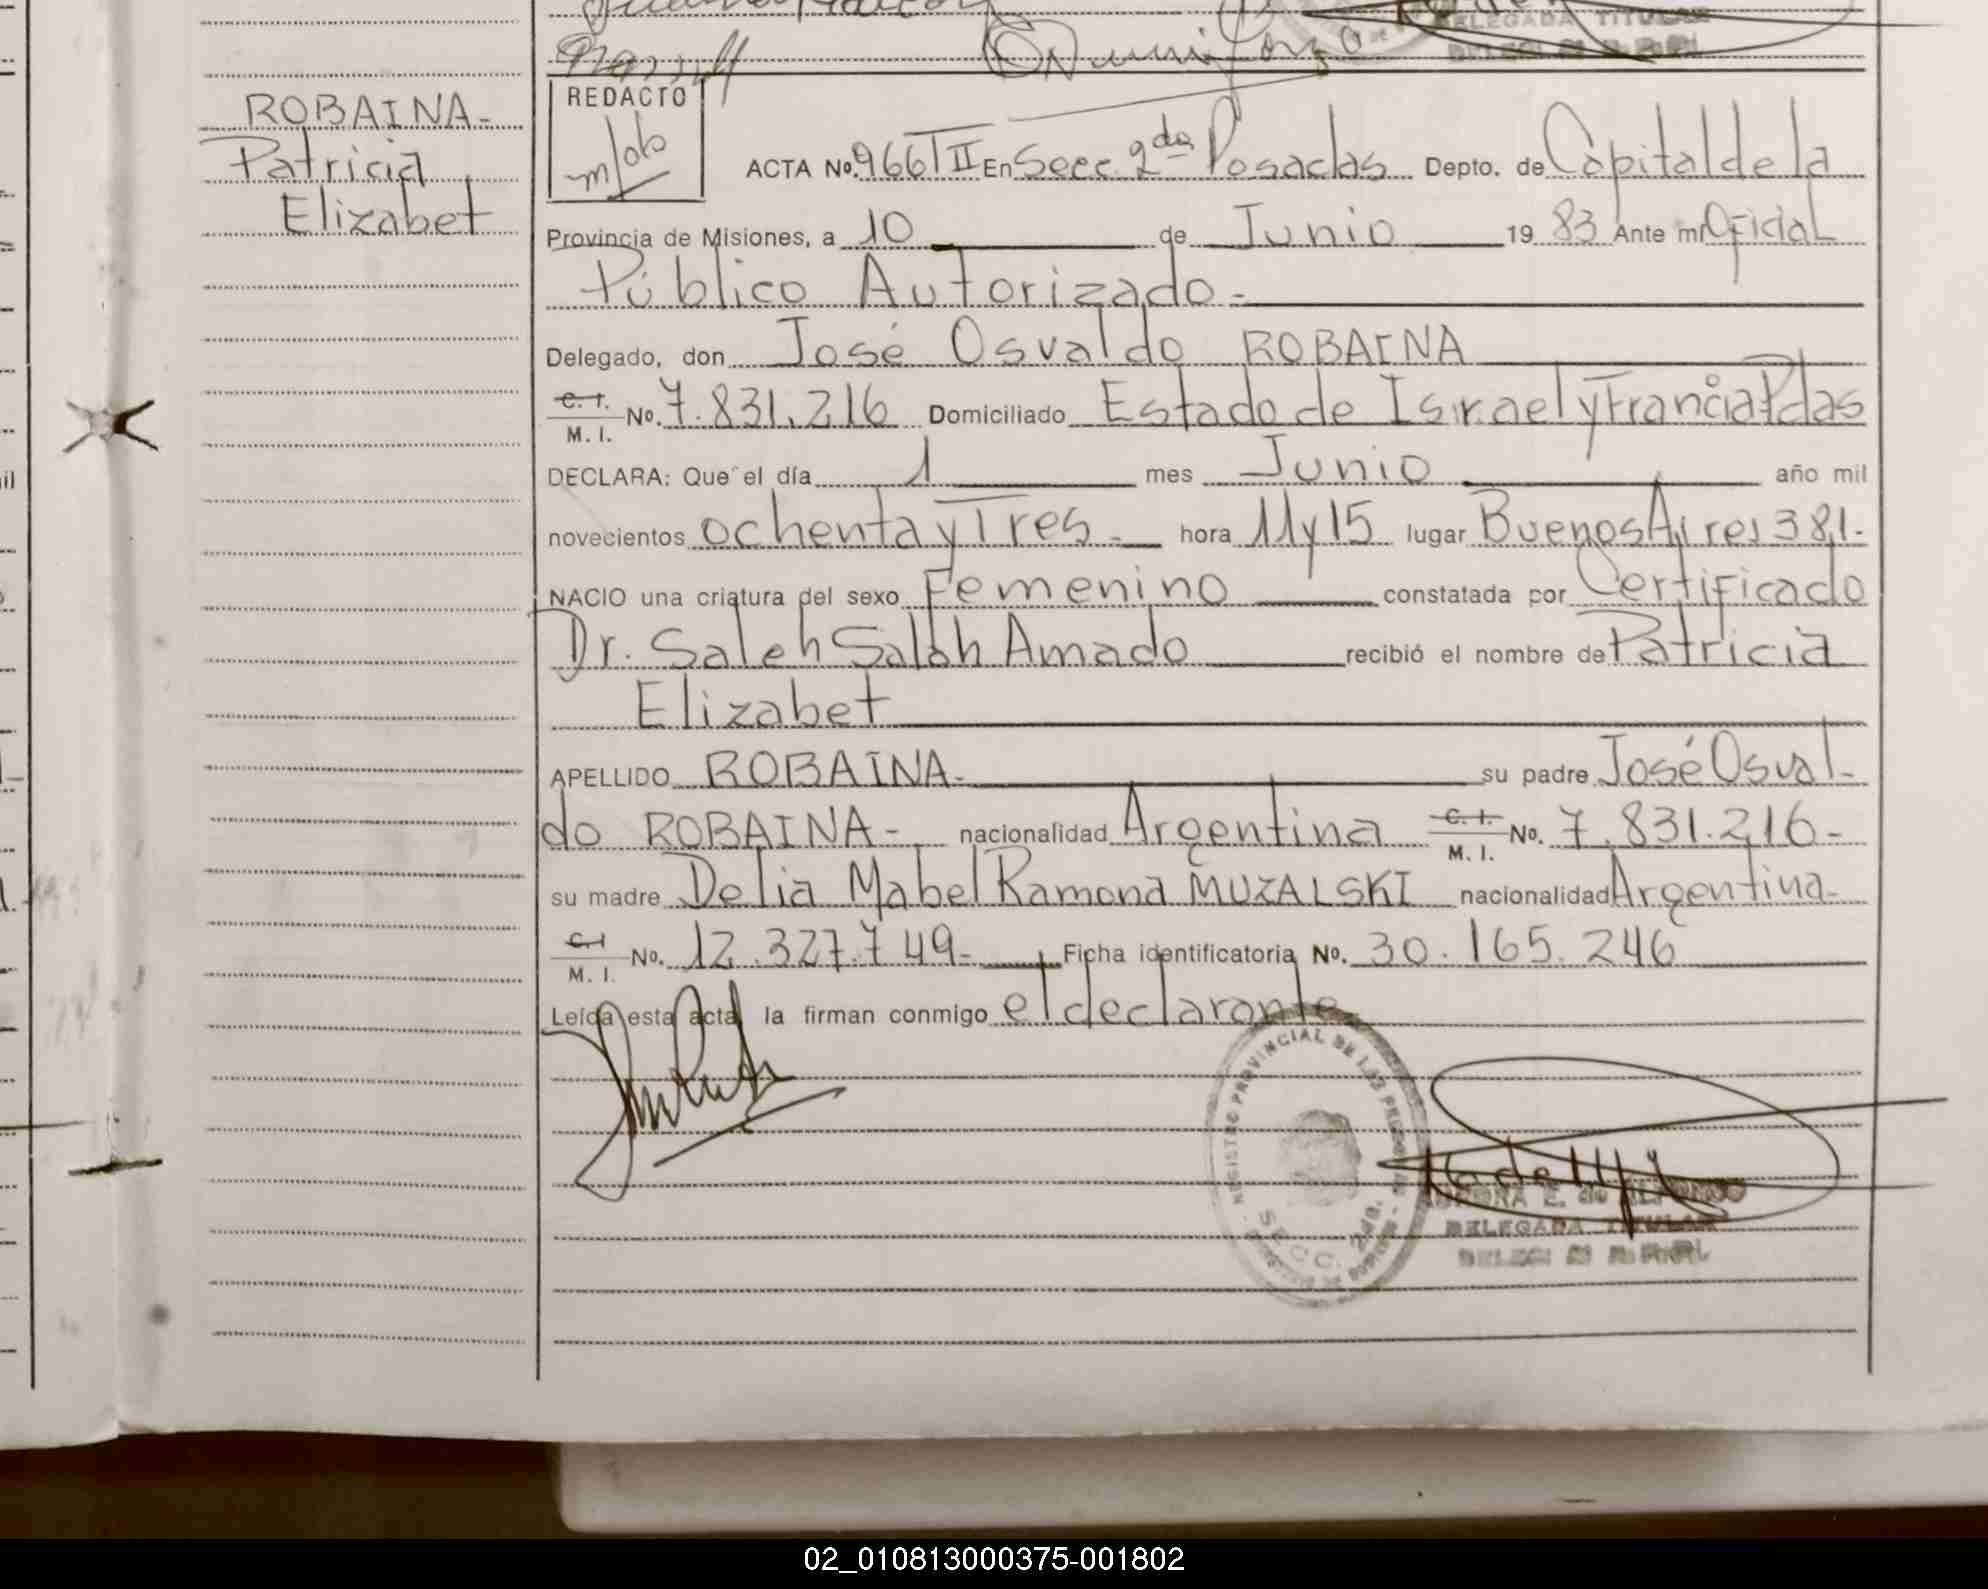 DELEGADA TITULAR
ROBAINA-
Patricia
Elizabet
REDACTO
ACTA No. 966 T II En Secc. 2da Posadas Depto. de Capital de la
Provincia de Misiones, a 10 de Junio 19 83 Ante mi Oficial
Público Autorizado-
Delegado, don José Osvaldo ROBAINA
C. I. M. I. No. 7.831.216 Domiciliado Estado de Israel y Francia Pdas
DECLARA: Que el día 1 mes Junio año mil
novecientos ochenta y Tres- hora 11 y 15 lugar Buenos Aires 381-
NACIO una criatura del sexo Femenino constatada por Certificado
Dr. Saleh Salah Amado recibió el nombre de Patricia
Elizabet
APELLIDO ROBAINA- su padre José Osval-
do ROBAINA- nacionalidad Argentina C. I. M. I. No. 7.831.216-
su madre Delia Mabel Ramona MUZALSKI nacionalidad Argentina-
C. I M. I. No. 12.327.749- Ficha identificatoria No. 30.165.246
Leída esta acta la firman conmigo el declarante
REGISTRO PROVINCIAL DE LAS PERSONAS
SECC. 2da.
DELEGADA TITULAR
02_010813000375-001802